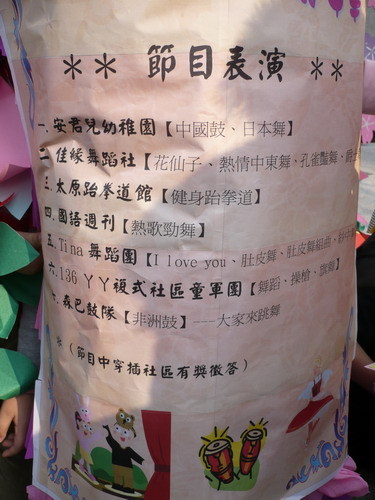 ** 節目表演 **
一.安君兒幼稚園【中國鼓、日本舞】
二.佳緣舞蹈社【花仙子、熱情中東舞、孔雀豔舞、爵
三.太原跆拳道館【健身跆拳道】
四.國語週刊【熱歌勁舞】
五.Tina 舞蹈團【I love you、肚皮舞、肚皮舞組曲、
六.136 丫丫複式社區童軍團【舞蹈、操槍、旗舞】
七.森巴鼓隊【非洲鼓】---大家來跳舞
*（節目中穿插社區有獎徵答）